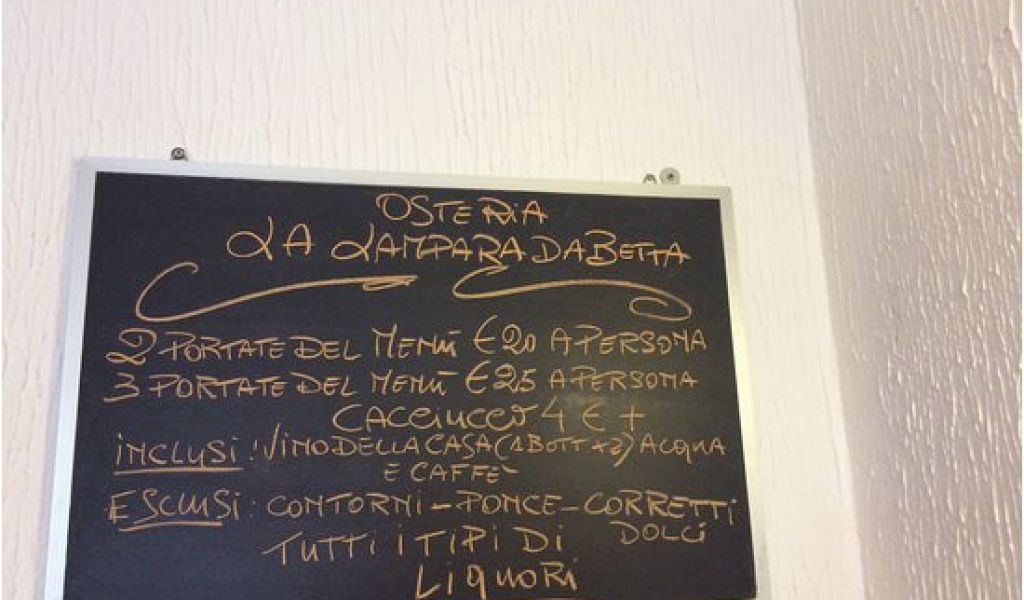 OSTERIA
LA LAMPARA DA BETTA
2 PORTATE DEL MENÙ €20 A PERSONA
3 PORTATE DEL MENÙ €25 A PERSONA
CACCIUCCO 4 € +
INCLUSI: VINO DELLA CASA (1 BOTT x 2) ACQUA
E CAFFÈ
ESCLUSI: CONTORNI - PONCE - CORRETTI
DOLCI
TUTTI I TIPI DI
LIQUORI